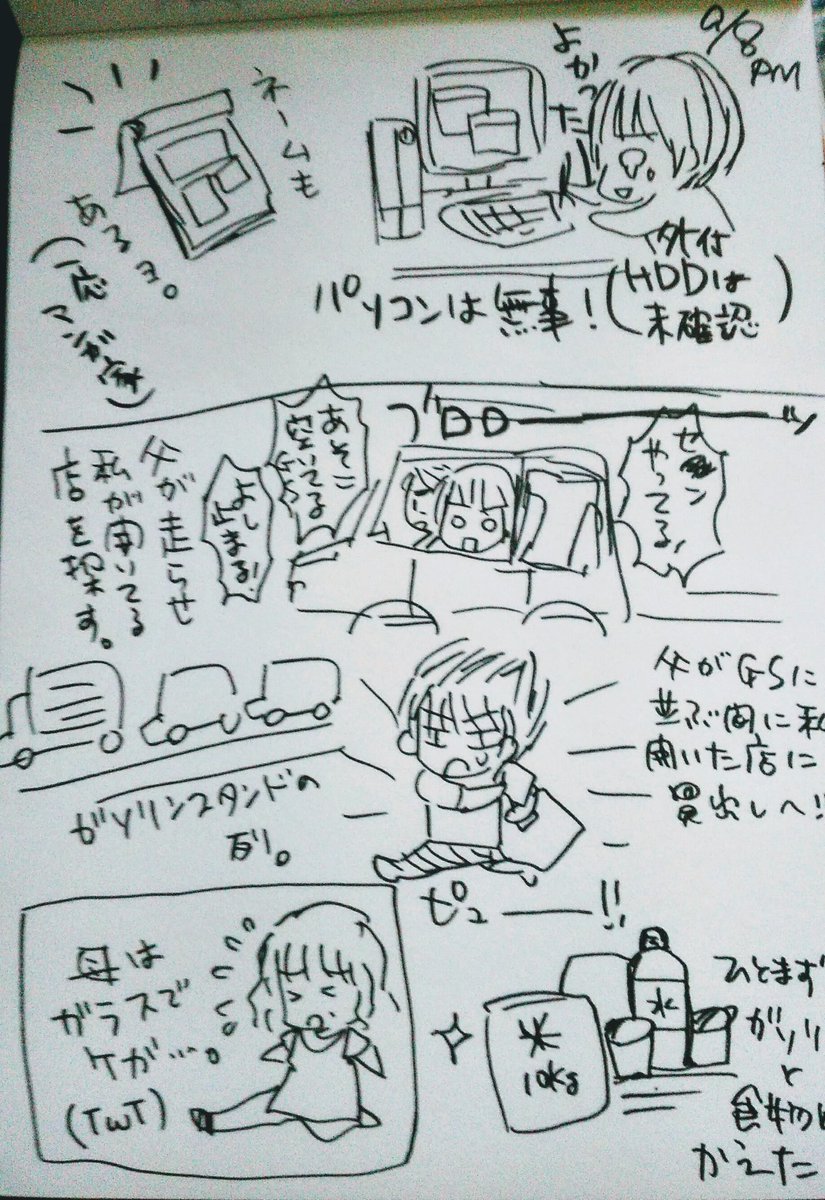 9/8
AM
よかった
外付
HDDは
未確認
パソコンは無事!
ネームも
あるヨ。
(一応
マンガ家)
ブロロ――ッ
セブン
やってる!
あそこ
空いてる
GS
よし
止まるぞ!
父が走らせ
私が開いてる
店を探す。
父がGSに
並ぶ間に私
開いた店に
買出しへ!!
ガソリンスタンドの
列。
ピュ――!!
ひとまず
ガソリ
と
食物は
かえた
水
米
10kg
母は
ガラスで
ケガ…。
(TwT)